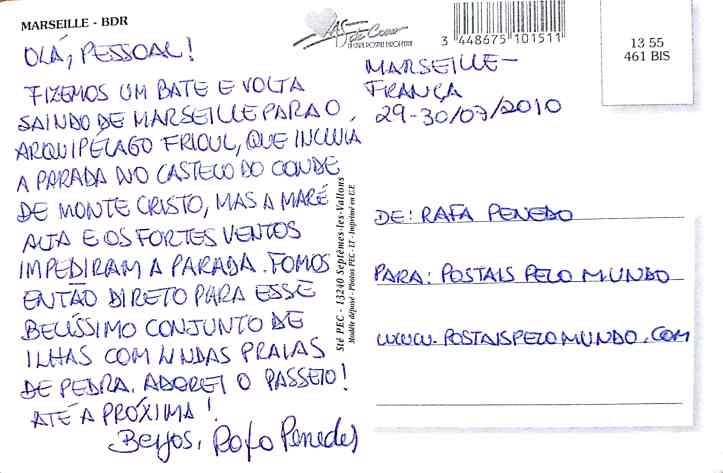 MARSEILLE - BDR
OLÁ, PESSOAL!
FIZEMOS UM BATE E VOLTA
SAINDO DE MARSEILLE PARA O
ARQUIPÉLAGO FRIOUL, QUE INCLUIA
A PARADA NO CASTELO DO CONDE
DE MONTE CRISTO, MAS A MARÉ
ALTA E OS FORTES VENTOS
IMPEDIRAM A PARADA. FOMOS
ENTÃO DIRETO PARA ESSE
BELÍSSIMO CONJUNTO DE
ILHAS COM LINDAS PRAIAS
DE PEDRA. ADOREI O PASSEIO!
ATÉ A PRÓXIMA!
Beijos, Rafa Penedo
Sté PEC - 13240 Septèmes-les-Vallons
Modèle déposé - Photos PEC - IT - Imprimé en U.E
3 448675 101511
13 55
461 BIS
MARSEILLE -
FRANÇA
29-30/07/2010
DE: RAFA PENEDO
PARA: POSTAIS PELO MUNDO
WWW.POSTAISPELOMUNDO.COM